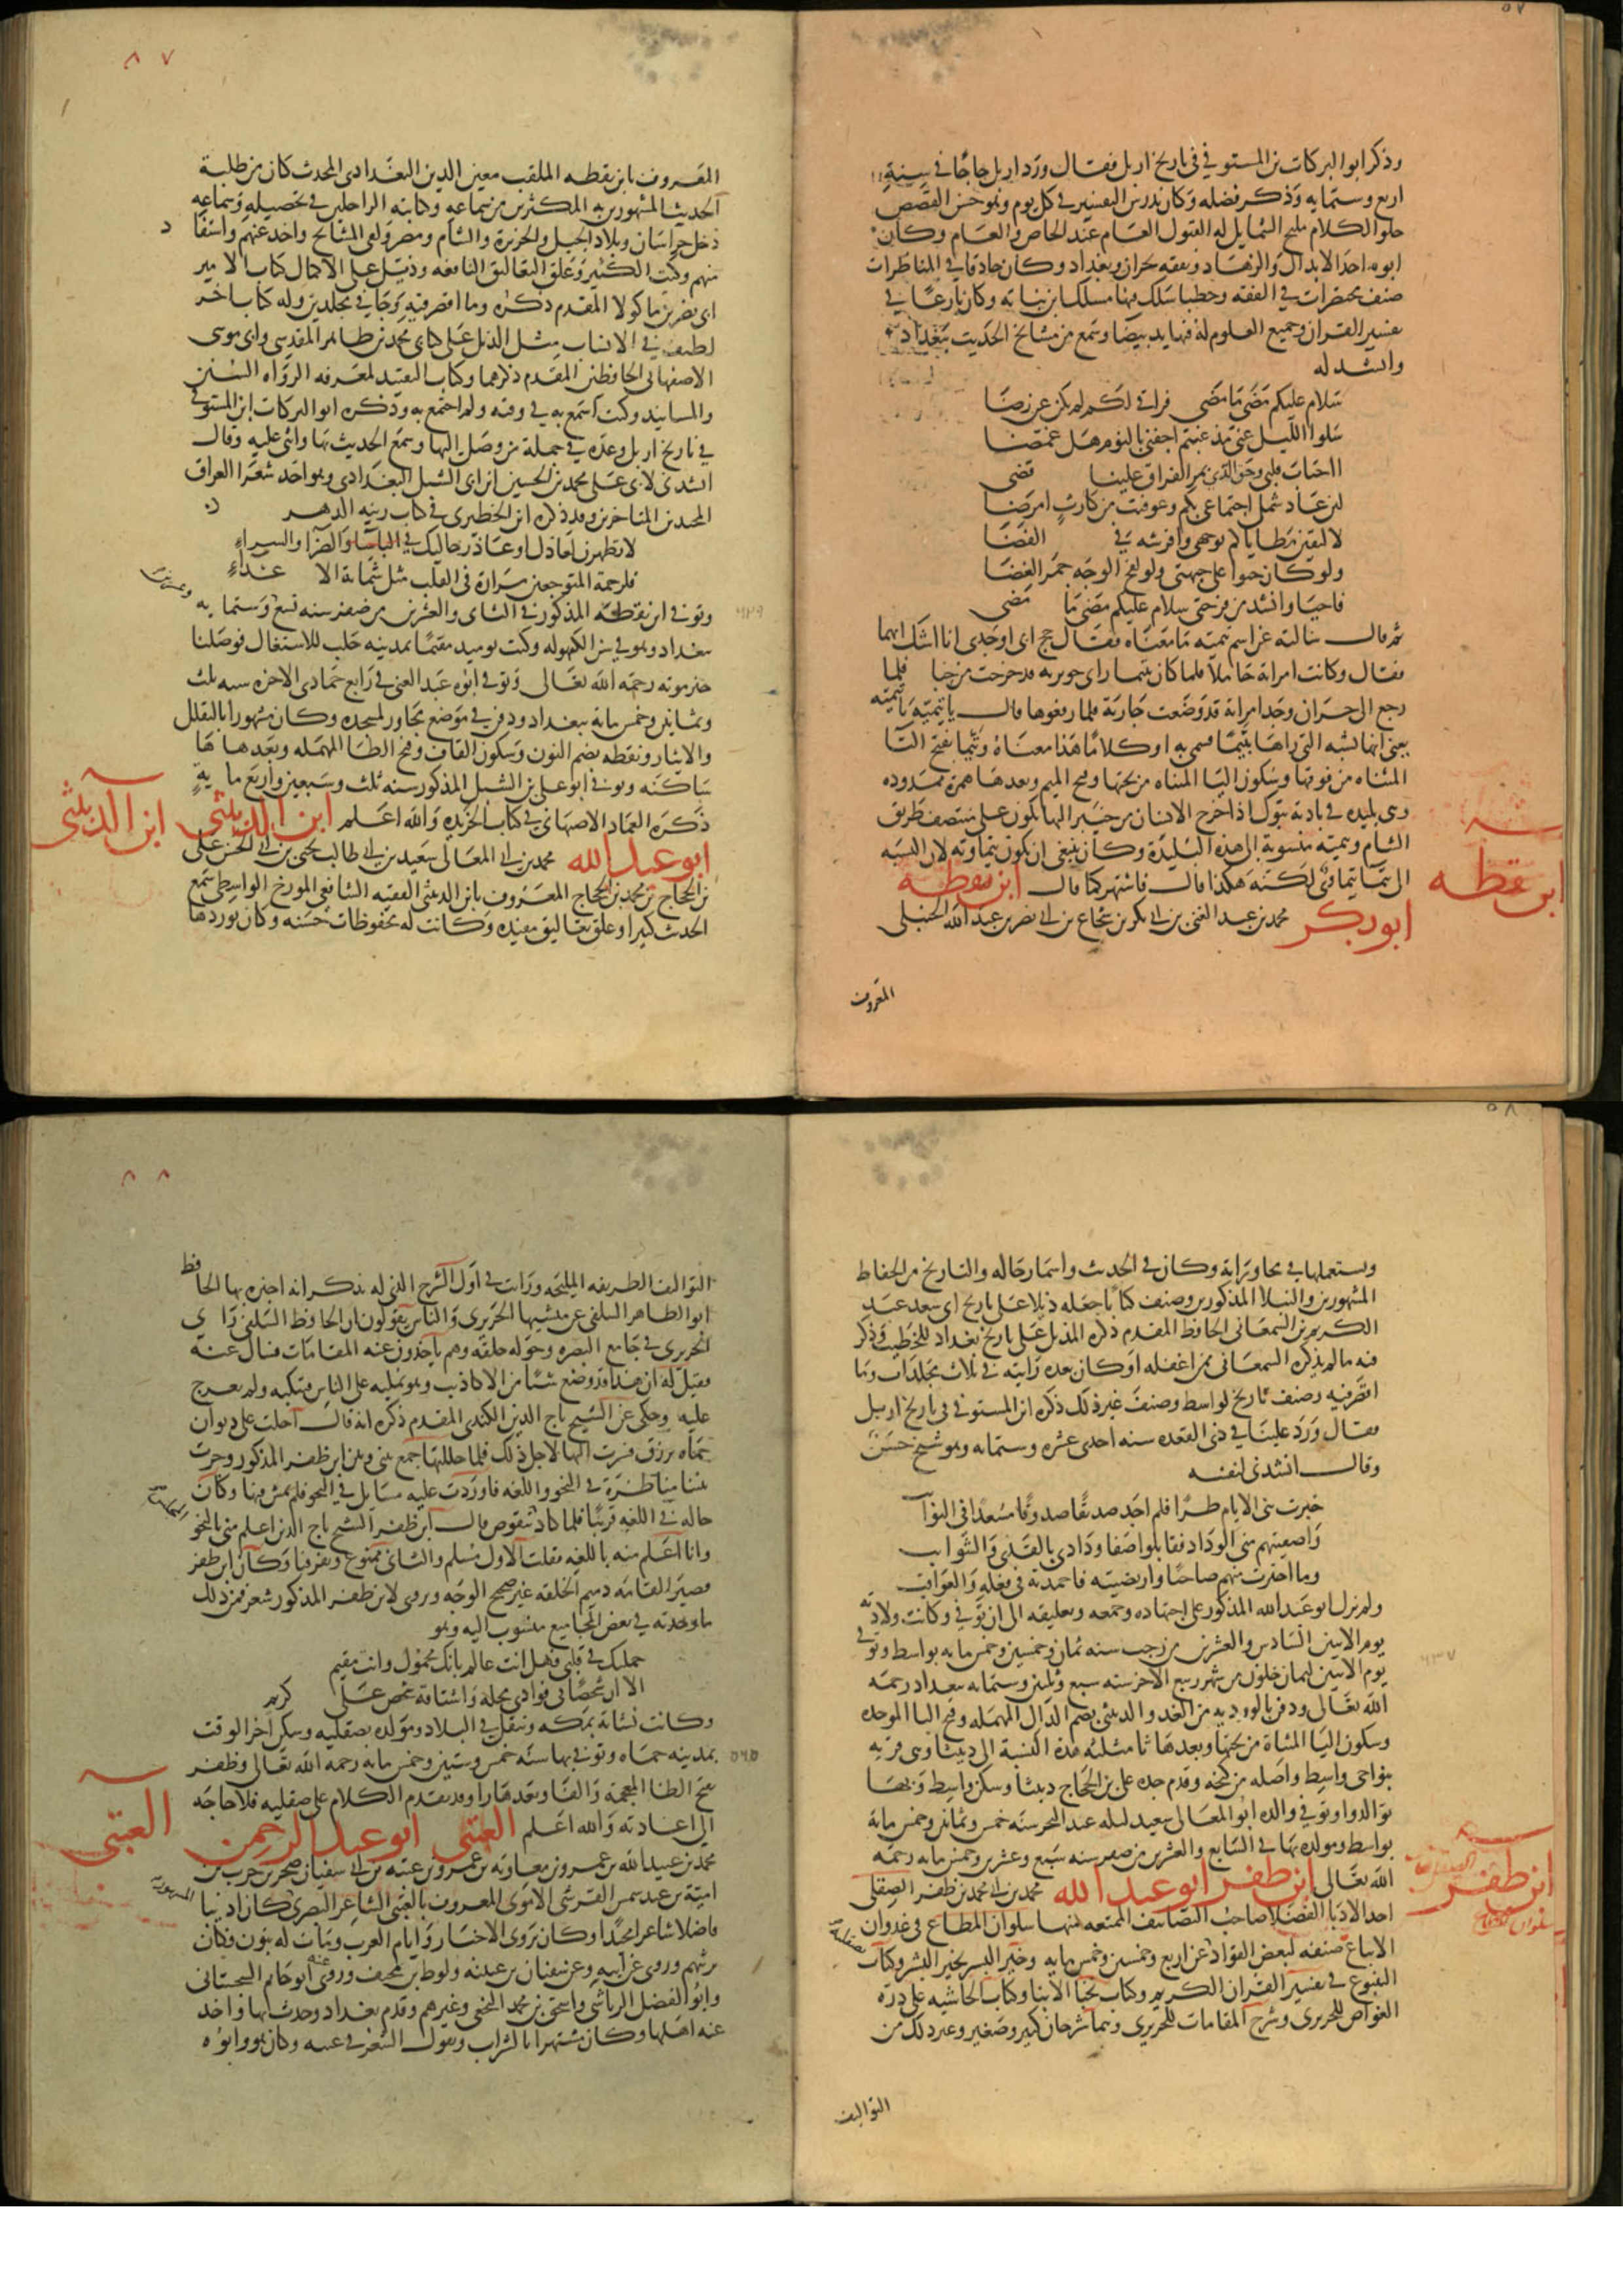 وذكر ابو البركات بن المستوفي في تاريخ اربل فقال ورد اربل حاجًا في سنة
اربع وستمايه وذكر فضله وكان يدرس التفسير في كل يوم وهو حسن القصص
حلو الكلام مليح الشمايل له القبول العام عند الخاص والعام وكان
ابوه احد الابدال والزهاد وتفقه بحران وبغداد وكان حاذقا في المناظرات
صنف مختصرات في الفقه وخطبا سلك فيها مسلك ابن نباته وكان بارعًا في
تفسير القران وجميع العلوم له فيها يد بيضا وسمع من مشايخ الحديث ببغداد
وانشد له
سلام عليكم مضى ما مضى فراقي لكم لم يكن عن رضا
سلوا الليل عني مذ غبتم اجفني بالنوم هل غمضا
ااحباب قلبي وحق الذي بمر الفراق علينا قضى
لئن عاد شمل اجتماعي بكم وعوفيت من كارث امرضا
لالتقين مطاياكم بوجهي وافرشه في الفضا
ولو كان حبوا على جبهتي ولو لفح الوجه جمر الغضا
فاحيا وانشد من فرحتي سلام عليكم مضى ما مضى
ثم قال سالته عن اسم تيميه ما معناه فقال حج ابي او جدي انا اشك ايهما
فقال وكانت امراته حاملا فلما كان بتيما راى جويريه قد خرجت من خبا فلما
رجع الى حران وجد امراته قد وضعت جارية فلما رفعوها قال يا تيميه يا تيميه
يعني انها تشبه التي راها بتيما فسمي به او كلامًا هذا معناه وتيما بفتح التا
المثناه من فوقها وسكون اليا المثناه من تحتها وفتح الميم وبعدها همزة ممدوده
وهي بليده في باديه تبوك اذا خرج الانسان من خيبر اليها تكون على منتصف طريق
الشام وتيميه منسوبة الى هذه البليدة وكان ينبغي ان تكون تيماويه لان النسبه
الى تيما تيماوي لكنه هكذا قال فاشتهر كما قال ابن نقطه
ابن نقطه
ابو بكر محمد بن عبد الغني بن ابي بكر بن شجاع بن ابي نصر بن عبد الله الحنبلي
المعروف
٨٧
المعروف بابن نقطه الملقب معين الدين البغدادي المحدث كان من طلبة
الحديث المشهورين به المكثرين من سماعه وكتابته الراحلين في تحصيله وسماعه
دخل خراسان وبلاد الجبل والجزيرة والشام ومصر ولقي المشايخ واخذ عنهم واستفا د
منهم وكتب الكثير وعلق التعاليق النافعه وذيل على الاكمال كتاب الامير
ابي نصر بن ماكولا المقدم ذكره وما اقصر فيه وجا في مجلدين وله كتاب اخر
لطيف في الانساب مثل الذيل على كتاب محمد بن طاهر المقدسي وابي موسى
الاصفهاني الحافظين المقدم ذكرهما وكتاب التقييد لمعرفه الرواه السنن
والمسانيد وكنت اسمع به في وقته ولم اجتمع به وذكره ابو البركات ابن المستوفي
في تاريخ اربل وعده في جملة من وصل اليها وسمع الحديث بها واثنى عليه وقال
انشدني لابي على محمد بن الحسين ابن ابي الشبل البغدادي وهو احد شعرا العراق
المجيدين المتاخرين وقد ذكره ابن الخطيري في كتاب زينه الدهر
لا تظهرن لعاذل او عاذر حاليك في الباساو الضرا والسراء
فلرحمة المتوجعين مرارة في القلب مثل شماتة الا عداء
وتوفي ابن نقطه المذكور في الثاني والعشرين من صفر سنه تسع وستمايه
وعشرين
٦٢٩
ببغداد وهو في سن الكهوله وكنت يوميد مقيمًا بمدينه حلب للاشتغال فوصلنا
خبر موته رحمه الله تعالى وتوفي ابوه عبد الغني في رابع جمادي الاخره سنه ثلث
وثمانين وخمس مايه ببغداد ودفن في موضع مجاور لمسجده وكان مشهورا بالتقلل
والايثار ونقطه بضم النون وسكون القاف وفتح الطا المهمله وبعدها ها
ساكنه وتوفي ابو علي بن الشبل المذكور سنه ثلث وسبعين واربع مايةٍ
ذكره العماد الاصبهاني في كتاب الخريده والله اعلم ابن الدبيثي
ابن الدبيثي
ابو عبد الله محمد بن ابي المعالي سعيد بن ابي طالب يحيى بن ابي الحسن علي
بن الحجاج بن محمد بن الحجاج المعروف بابن الدبيثي الفقيه الشافعي المورخ الواسطي سمع
الحديث كثيرا وعلق تعاليق مفيده وكانت له محفوظات حسنه وكان يوردها
ويستعملها في محاوراته وكان في الحديث واسما رجاله والتاريخ من الحفاظ
المشهورين والنبلا المذكورين وصنف كتابًا جعله ذيلا على تاريخ ابي سعد عبد
الكريم بن السمعاني الحافظ المقدم ذكره المذيل على تاريخ بغداد للخطيب وذكر
فيه ما لم يذكره السمعاني ممن اغفله او كان بعده رايته في ثلاث مجلدات وما
اقصر فيه وصنف تاريخ لواسط وصنف غير ذلك ذكره ابن المستوفي في تاريخ اربل
فقال ورد علينا في ذي القعده سنه احدى عشره وستمايه وهو شيخ حسن
وقال انشدني لنفسه
خبرت بني الايام طرًا فلم اجد صديقًا صدوقًا مسعدًا في النوا
واصفيتهم مني الوداد فقابلوا صفا ودادي بالقذي والشوايب
وما اخترت منهم صاحبًا وارتضيته فاحمدته في فعله والعواقب
ولم يزل ابو عبد الله المذكور على اجتهاده وجمعه وتعليقه الى ان توفي وكانت ولادته
يوم الاثنين السادس والعشرين من رجب سنه ثمان وخمسين وخمس مايه بواسط وتوفي
يوم الاثنين لثمان خلون من شهر ربيع الاخر سنه سبع وثلثين وستمايه ببغداد رحمه
٦٣٧
الله تعالى ودفن بالورديه من الغد والدبيثي بضم الدال المهمله وفتح البا الموحده
وسكون اليا المثناة من تحتها وبعدها ثا مثلثه هذه النسبة الى دبيثا وهي قريه
بنواحي واسط واصله من كنجه وقدم جده علي بن الحجاج دبيثا وسكن واسط وبها
توالدوا وتوفي والده ابو المعالي سعيد ليله عيد النحر سنه خمس وثمانين وخمس مايه
بواسط ومولده بها في السابع والعشرين من صفر سنه سبع وعشرين وخمس مايه رحمه
الله تعالى ابن ظفر ابو عبد الله محمد بن ابي محمد بن ظفر الصقلي
ابن ظفر
احد الادبا الفضلا صاحب التصانيف الممتعه منها سلوان المطاع في عدوان
الاتباع صنفه لبعض القواد عن اربع وخمسين وخمس مايه وخير البشر بخير البشر وكتاب
بصقليه
الينبوع في تفسير القران الكريم وكتاب نجبا الابنا وكتاب الحاشيه على دره
الغواص للحريري وشرح المقامات للحريري وهما شرحان كبير وصغير وغير ذلك من
التواليف
٨٨
التواليف الظريفه المليحه ورايت في اول الشرح الذي له يذكر انه اخبره بها الحافظ
ابو الطاهر السلفي عن منشيها الحريري والناس يقولون ان الحافظ السلفي راى
الحريري في جامع البصره وحوله حلقه وهم ياخذون عنه المقامات فسال عنه
فقيل له ان هذا قد وضع شيًا من الاكاذيب وهو يمليه على الناس فتنكبه ولم يعرج
عليه وحكى عن الشيخ تاج الدين الكندي المقدم ذكره انه قال احلت على ديوان
حماه برزق فسرت اليها لاجل ذلك فلما حللتها جمع بيني وبين ابن ظفر المذكور وجرت
بيننا مناظره في النحو واللغه فاوردت عليه مسايل في النحو فلم يمش فيها وكان
حاله في اللغه قريبًا فلما كاد تتقوض قال ابن ظفر الشيخ تاج الدين اعلم مني بالنحو
المجلس
وانا اعلم منه باللغه فقلت الاول مسلم والثاني ممنوع وتفرقنا وكان ابن ظفر
قصير القامه دميم الخلقه غير صبيح الوجه ويروى لابن ظفر المذكور شعر فمن ذلك
ما وجدته في بعض المجاميع منسوب اليه وهو
حملتك في قلبي فهل انت عالم بانك محمول وانت مقيم
الا ان شخصًا في فوادي محله واشتاقه شخص على كريم
وكانت نشاته بمكه وتنقل في البلاد ومولده بصقليه وسكن اخر الوقت
بمدينه حماه وتوفي بها سنه خمس وستين وخمس مايه رحمه الله تعالى وظفر
٥٦٥
بفتح الظا المعجمه والفا وبعدها را وقد تقدم الكلام على صقليه فلا حاجه
الى اعادته والله اعلم العتبي ابو عبد الرحمن
العتبي
محمد بن عبيد الله بن عمرو بن معاويه بن عمرو بن عتبه بن ابي سفيان صخر بن حرب بن
اميه بن عبد شمس القرشي الاموي المعروف بالعتبي الشاعر البصري كان ادبيا
فاضلا شاعرا مجيدًا وكان يروى الاخبار وايام العرب ومات له بنون فكان
يرثيهم وروى عن ابيه وعن سفيان بن عيينه ولوط بن مخنف وروى عنه ابو حاتم السجستاني
وابو الفضل الرياشي واسحق بن محمد النخعي وغيرهم وقدم بغداد وحدث بها واخذ
عنه اهلها وكان مشتهرا بالشراب ويقول الشعر في عتبه وكان هو وابوه